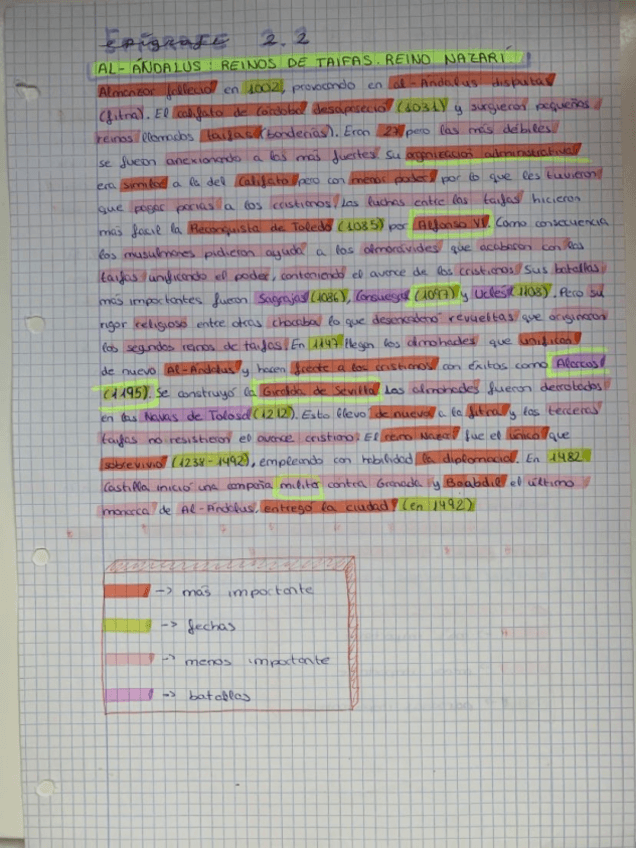 epígrafe 2.2
AL-ÁNDALUS: REINOS DE TAIFAS. REINO NAZARÍ
Almanzor falleció en 1002, provocando en al-Andalus disputas
(fitna). El califato de Córdoba desapareció (1031) y surgieron pequeños
reinos llamados taifas (banderías). Eran 27 pero las más débiles
se fueron anexionando a las más fuertes. Su organización administrativa
era similar a la del califato pero con menos poder, por lo que les tuvieron
que pagar parias a los cristianos. Las luchas entre las taifas hicieron
más facil la Reconquista de Toledo (1085) por Alfonso VI. Como consecuencia
los musulmanes pidieron ayuda a los almorávides que acabaron con las
taifas unificando el poder, conteniendo el avance de los cristianos. Sus batallas
más importantes fueron Sagrajas (1086), Consuegra (1097) y Uclés (1108). Pero su
rigor religioso entre otras chocaba lo que desencadenó revueltas que originaron
los segundos reinos de taifas. En 1147 llegan los almohades que unifican
de nuevo Al-Andalus y hacen frente a los cristianos con éxitos como Alarcos
(1195). Se construyó la Giralda de Sevilla. Los almohades fueron derrotados
en las Navas de Tolosa (1212). Esto llevo de nuevo a la fitna y las terceras
taifas no resistieron el avance cristiano. El reino Nazarí fue el único que
sobrevivió (1238-1492), empleando con habilidad la diplomacia. En 1482
Castilla inició una campaña militar contra Granada y Boabdil el último
monarca de Al-Andalus, entregó la ciudad (en 1492)
-> más importante
-> fechas
-> menos importante
-> batallas